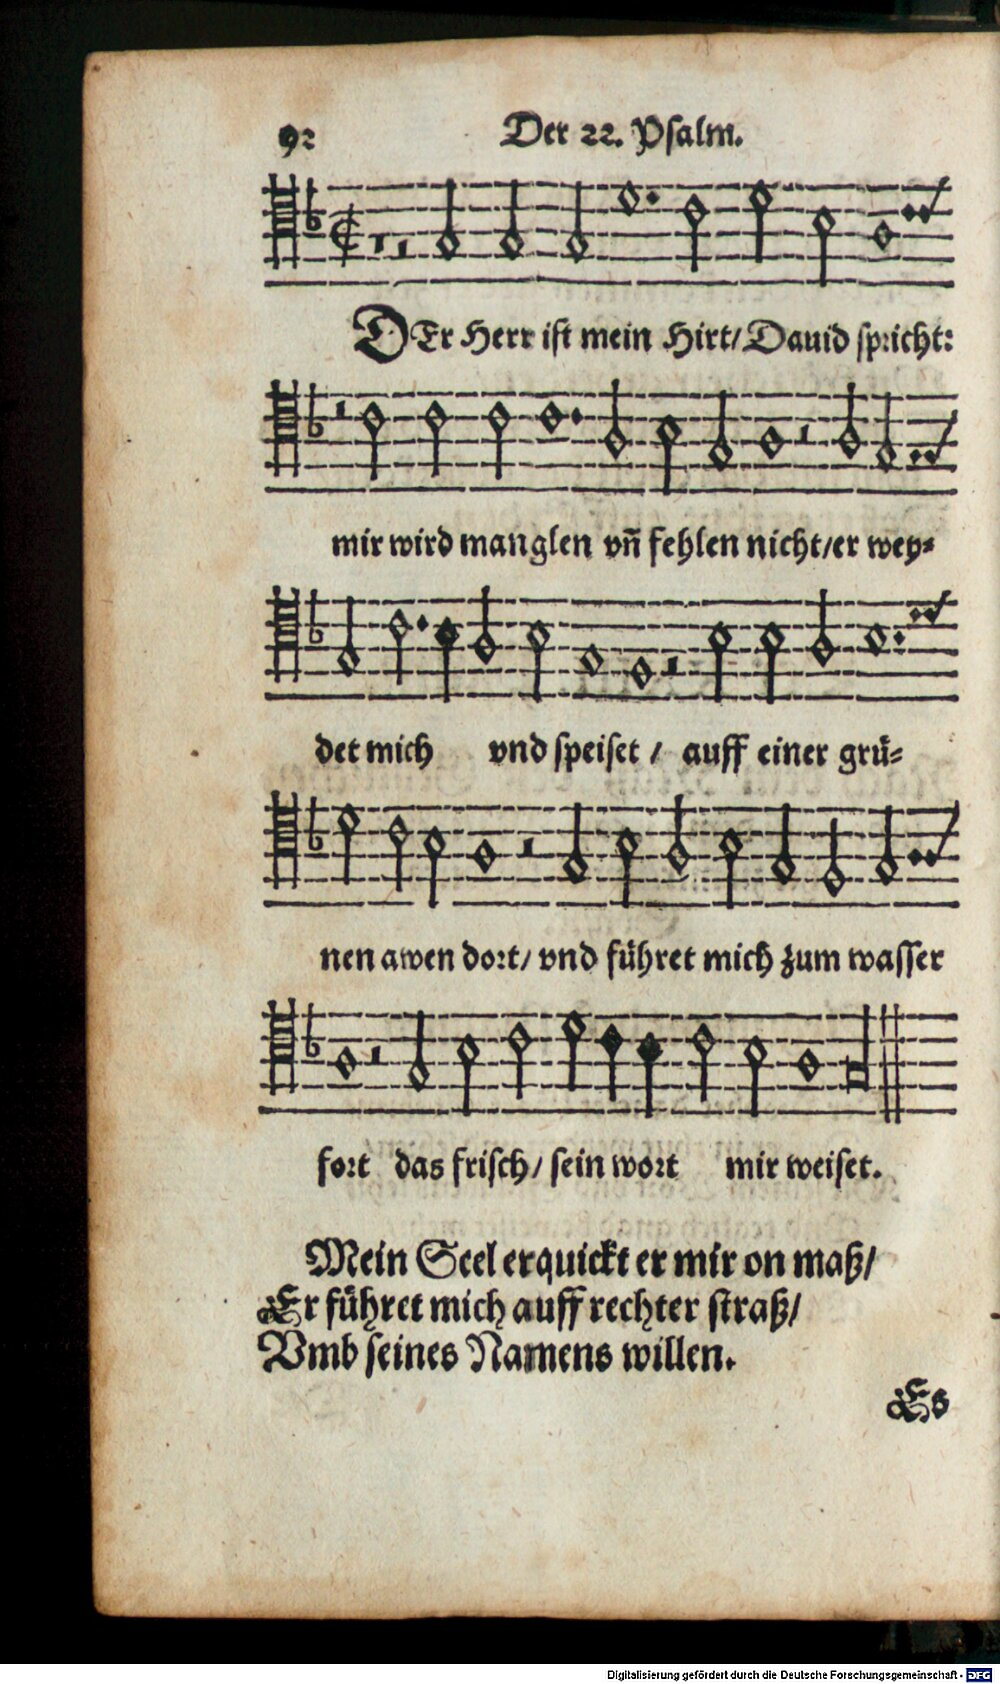 92
Der 22. Psalm.
DEr Herr ist mein Hirt/ Dauid spricht:
mir wird manglen vñ fehlen nicht/ er wey⸗
det mich vnd speiset / auff einer grü⸗
nen awen dort/ vnd führet mich zum wasser
fort das frisch/ sein wort mir weiset.
Mein Seel erquickt er mir on maß/
Er führet mich auff rechter straß/
Vmb seines Namens willen.
Es
Digitalisierung gefördert durch die Deutsche Forschungsgemeinschaft - DFG